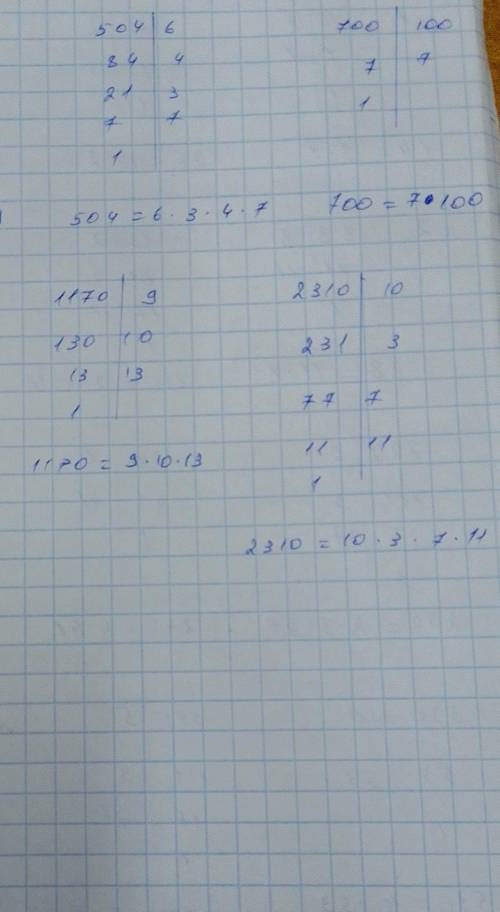 504 | 6
84 | 4
21 | 3
7 | 7
1
504 = 6 · 3 · 4 · 7
700 | 100
7 | 7
1
700 = 7 · 100
1170 | 9
130 | 10
13 | 13
1
1170 = 9 · 10 · 13
2310 | 10
231 | 3
77 | 7
11 | 11
1
2310 = 10 · 3 · 7 · 11